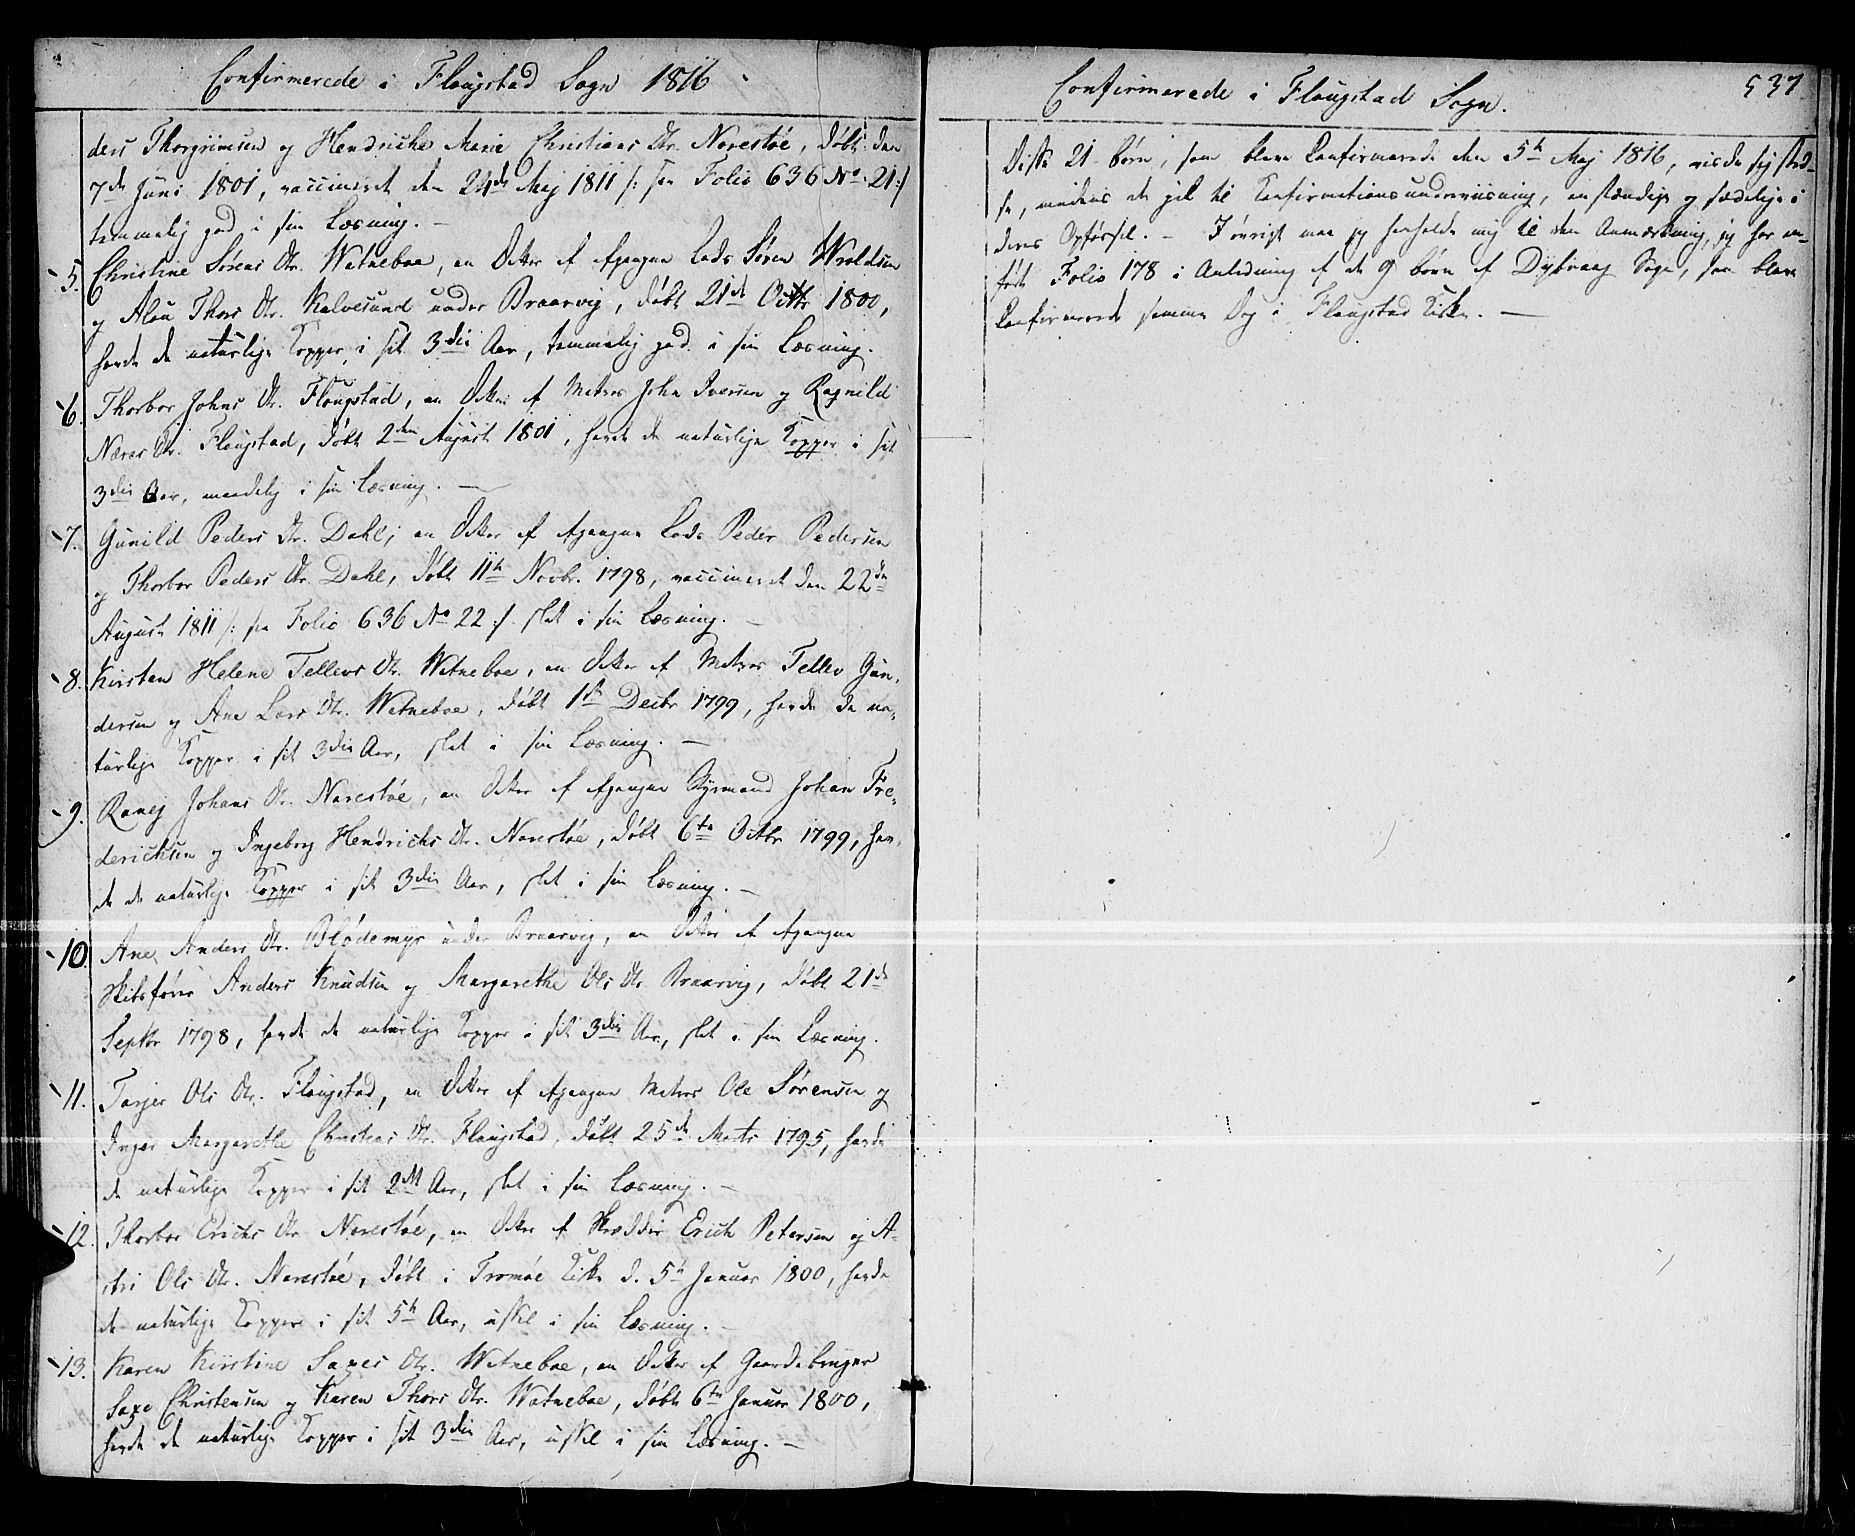 Confirmerede i Flaugstad Sogn 1816
ders Thorgrimsen og Hendriche Marie Christians Dtr. Narestöe, döbt den
7de Juni 1801, vaccineret den 24de Maj 1811 /: see Folio 636 No. 21 :/
temmelig god i sin Læsning. —
5. Christine Sörens Dtr. Watneboe, en Datter af afgangne Lods Sören Wroldsen
og Alou Thors Dtr. Kalvesund under Braarvig, döbt 21de Octbr 1800,
havde de naturlige Kopper i sit 3die Aar, temmelig god i sin Læsning.
6. Thorbor Johns Dtr. Flaugstad, en Datter af Matros John Iversen og Ragnild
Næres Dtr. Flaugstad, döbt 2den August 1801, havde de naturlige Kopper i sit
3die Aar, maadelig i sin Læsning. —
7. Gunild Peders Dtr. Dahl, en Datter af afgangne Lods Peder Pedersen
og Thorbor Peders Dtr. Dahl, döbt 11te Novbr. 1798, vaccineret den 22de
August 1811 /: see Folio 636 No 22 :/ slet i sin Læsning. —
8. Kirsten Helene Tellevs Dtr. Watneboe, en Datter af Matros Tellev Gun-
dersen og Ane Lars Dtr. Watneboe, döbt 1ste Decbr 1799, havde de na-
turlige Kopper i sit 3die Aar, slet i sin Læsning. —
9. Ranej Johans Dtr. Narestöe, en Datter af afgangne Styrmand Johan Fre-
derichsen og Ingeborg Hendrichs Dtr. Narestöe, döbt 6te Octbr 1799, hav-
de de naturlige Kopper i sit 3die Aar, slet i sin Læsning. —
10. Ane Anders Dtr. Blödemyr under Braarvig, en Datter af afgangne
Skibsförer Anders Knudsen og Margarethe Ols Dtr. Braarvig, döbt 21de
Septbr 1798, havde de naturlige Kopper i sit 3die Aar, slet i sin Læsning.
11. Tarjer Ols Dtr. Flaugstad, en Datter af afgangne Matros Ole Sörensen og
Inger Margarethe Christens Dtr. Flaugstad, döbt 25de Marts 1795, havde
de naturlige Kopper i sit 2det Aar, slet i sin Læsning. —
12. Thorbor Erichs Dtr Narestöe, en Datter af Skrædder Erich Petersen og A-
stri Ols Dtr. Narestöe, döbt i Tromöe Kirke d. 5te Januar 1800, havde
de naturlige Kopper i sit 5te Aar, uskel i sin Læsning. —
13. Karen Kirstine Saxes Dtr. Watneboe, en Datter af Gaardebruger
Saxe Christensen og Karen Thors Dtr. Watneboe, döbt 6te Januar 1800,
havde de naturlige Kopper i sit 3die Aar, uskel i sin Læsning. —
Confirmerede i Flaugstad Sogn.
537
Disse 21 börn, som bleve Confirmerede den 5te Maj 1816, viiste sig sted-
se, medens de gik til Confirmationsunderviisning, anstændige og sædelige i
deres Opförsel. — I övrigt maa jeg henholde mig til den Anmærkning, jeg har an-
fört Folio 178 i Anledning af de 9 börn af Dybvaag Sogn, som bleve
Confirmerede samme Dag i Flaugstad Kirke. —